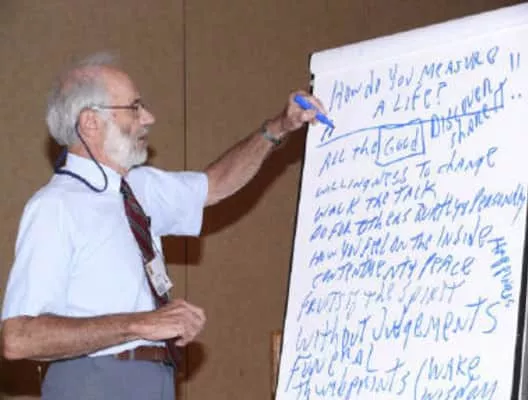 How do You MEASURE
A LiFe? "
DISCOVER
SHARE ..
ALL the Good
WILLINGNESS TO CHANGE
WALK THE TALK
DO FOR OTHERS PERSONALLY
HOW YOU FEEL ON THE INSIDE
CONTENTMENT PEACE
HAPPINESS
FRUITS OF THE SPIRIT
WITHOUT JUDGEMENTS
FUNERAL
THUMBPRINTS (WAKE
WISDOM